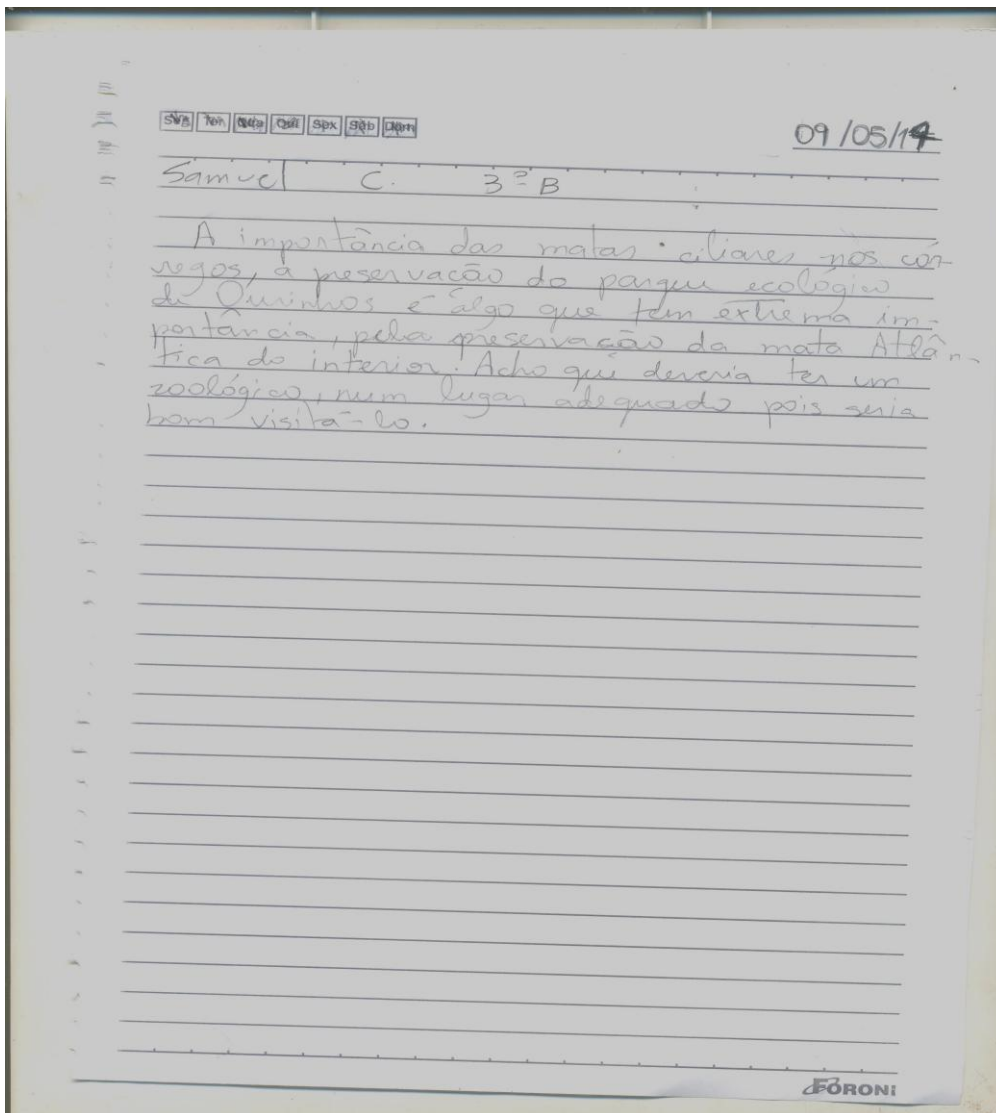 Seg Ter Qua Qui Sex Sáb Dom
09/05/14
Samuel C. 3º B
A importância das matas ciliares nos cór
regos, a preservação do parque ecológico
de Ourinhos é algo que tem extrema im-
portância, pela preservação da mata Atlân-
tica do interior. Acho que deveria ter um
zoológico, num lugar adequado pois seria
bom visitá-lo.
FORONI